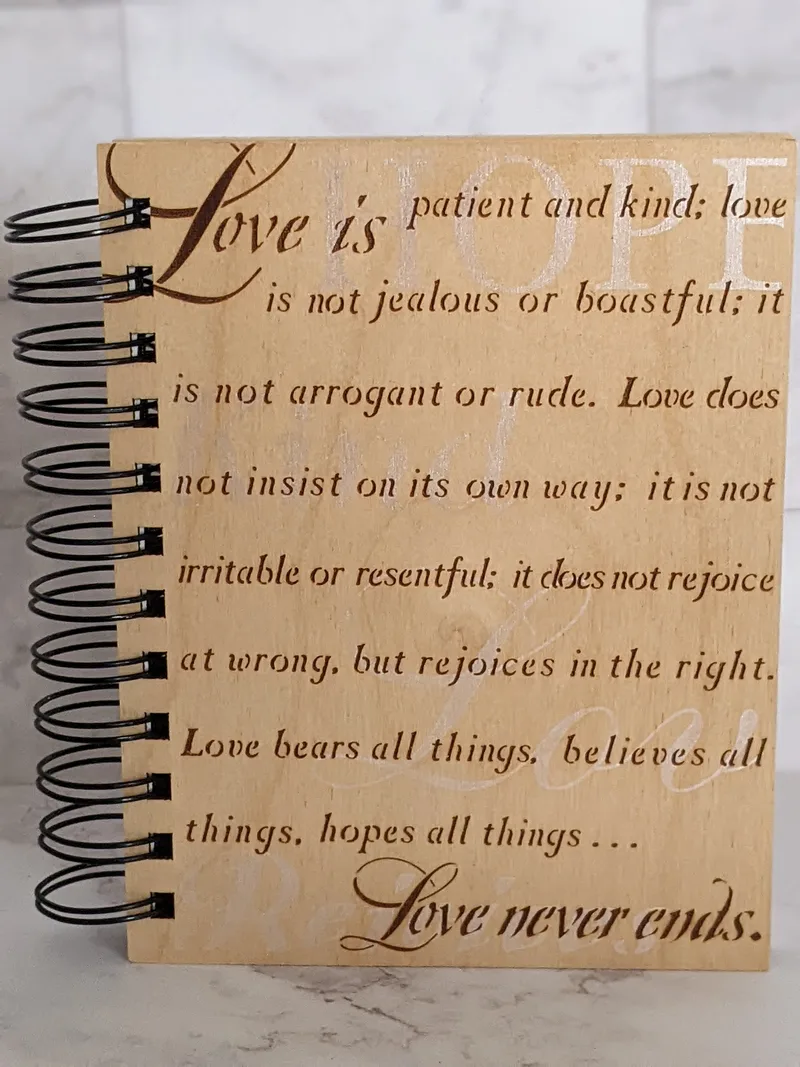 HOPE
Love is patient and kind; love
is not jealous or boastful; it
is not arrogant or rude. Love does
kind
not insist on its own way; it is not
irritable or resentful; it does not rejoice
at wrong, but rejoices in the right.
Love bears all things, believes all
things, hopes all things . . .
Love never ends.